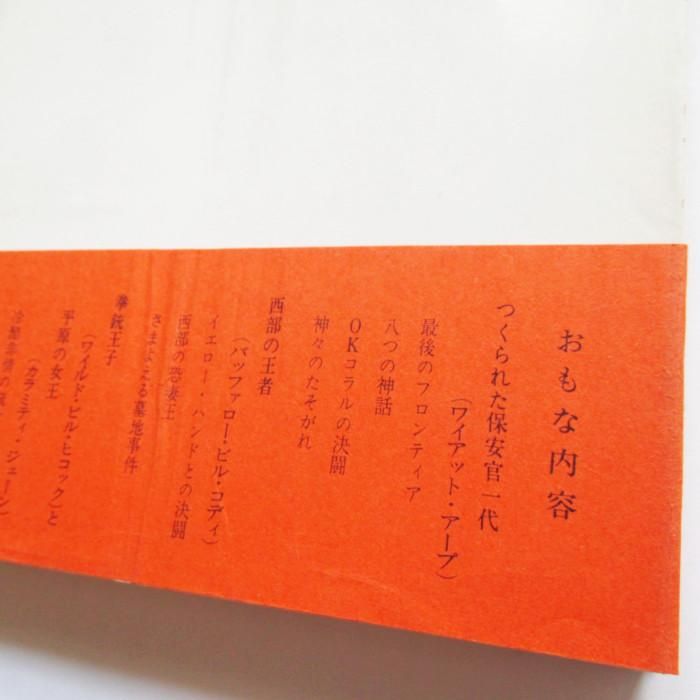 おもな内容
つくられた保安官一代
(ワイアット・アープ)
最後のフロンティア
八つの神話
OKコラルの決闘
神々のたそがれ
西部の王者
(バッファロー・ビル・コディ)
イエロー・ハンドとの決闘
西部の恐妻王
さまよえる墓地事件
拳銃王子
(ワイルド・ビル・ヒコック)と
平原の女王
(カラミティ・ジェーン)